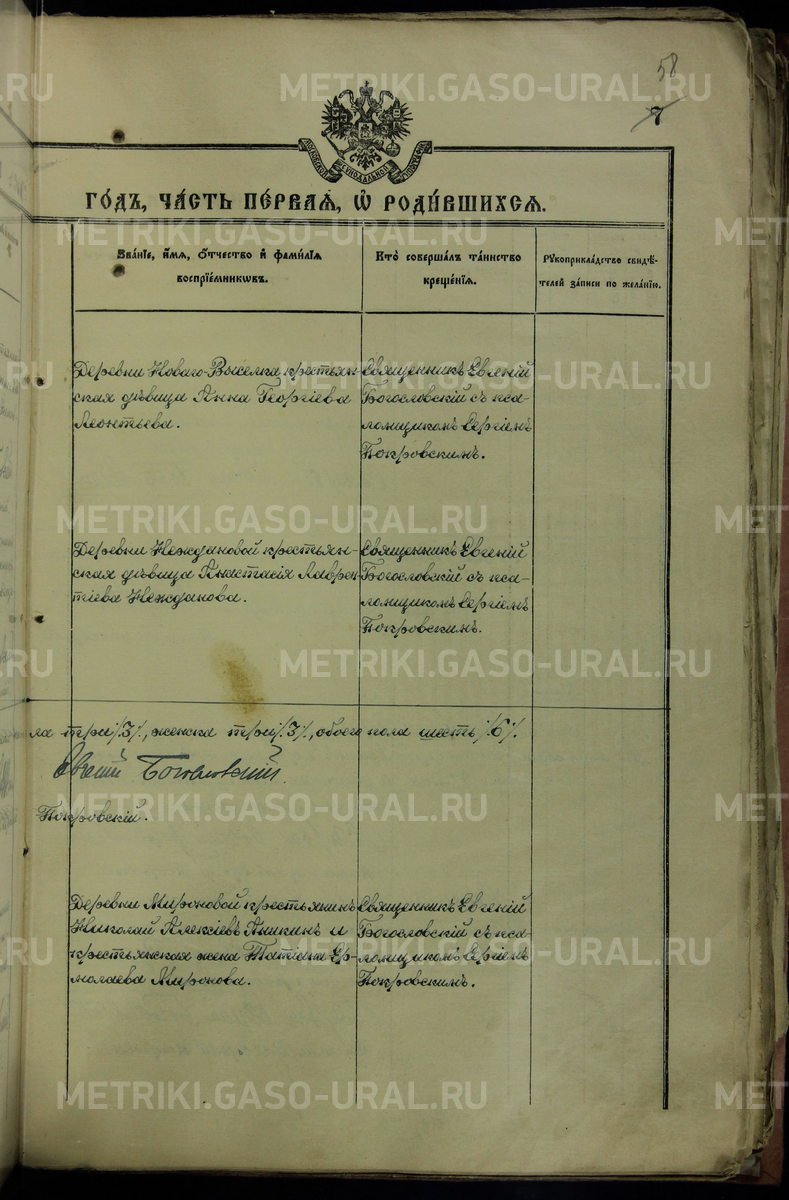 58
7
МОСКОВСКОЙ СѴНОДАЛЬНОЙ ТѴПОГРАФІИ
ГО́ДЪ, ЧА́СТЬ ПЕ́РВАѦ, Ѽ РОДИ́ВШИХСѦ.
Зва́нїе, и҆́мѧ, ѻ҆́тчество и҆ фами́лїѧ
воспрїе́мникѡвъ.
Кто̀ соверша́лъ та́инство
креще́нїѧ.
Рꙋкоприкла́дство свидѣ́-
телей за́писи по жела́нїю.
Деревни Новаго-Выселка крестьян-
ская дѣвица Анна Георгіева
Леонтьева.
Священникъ Евгеній
Богословскій съ пса-
ломщикомъ Сергіемъ
Покровскимъ.
Деревни Неждановой крестьян-
ская дѣвица Анастасія Лаврен-
тіева Нежданова.
Священникъ Евгеній
Богословскій съ пса-
ломщикомъ Сергіемъ
Покровскимъ.
ла три /3/, женска три /3/, обоего пола шесть /6/.
Евгеній Богословскій.
Покровскій.
Деревни Мироновой крестьянинъ
Николай Алексіевъ Аникинъ и
крестьянская жена Татіана Ер-
молаева Миронова.
Священникъ Евгеній
Богословскій съ пса-
ломщикомъ Сергіемъ
Покровскимъ.
METRIKI.GASO-URAL.RU